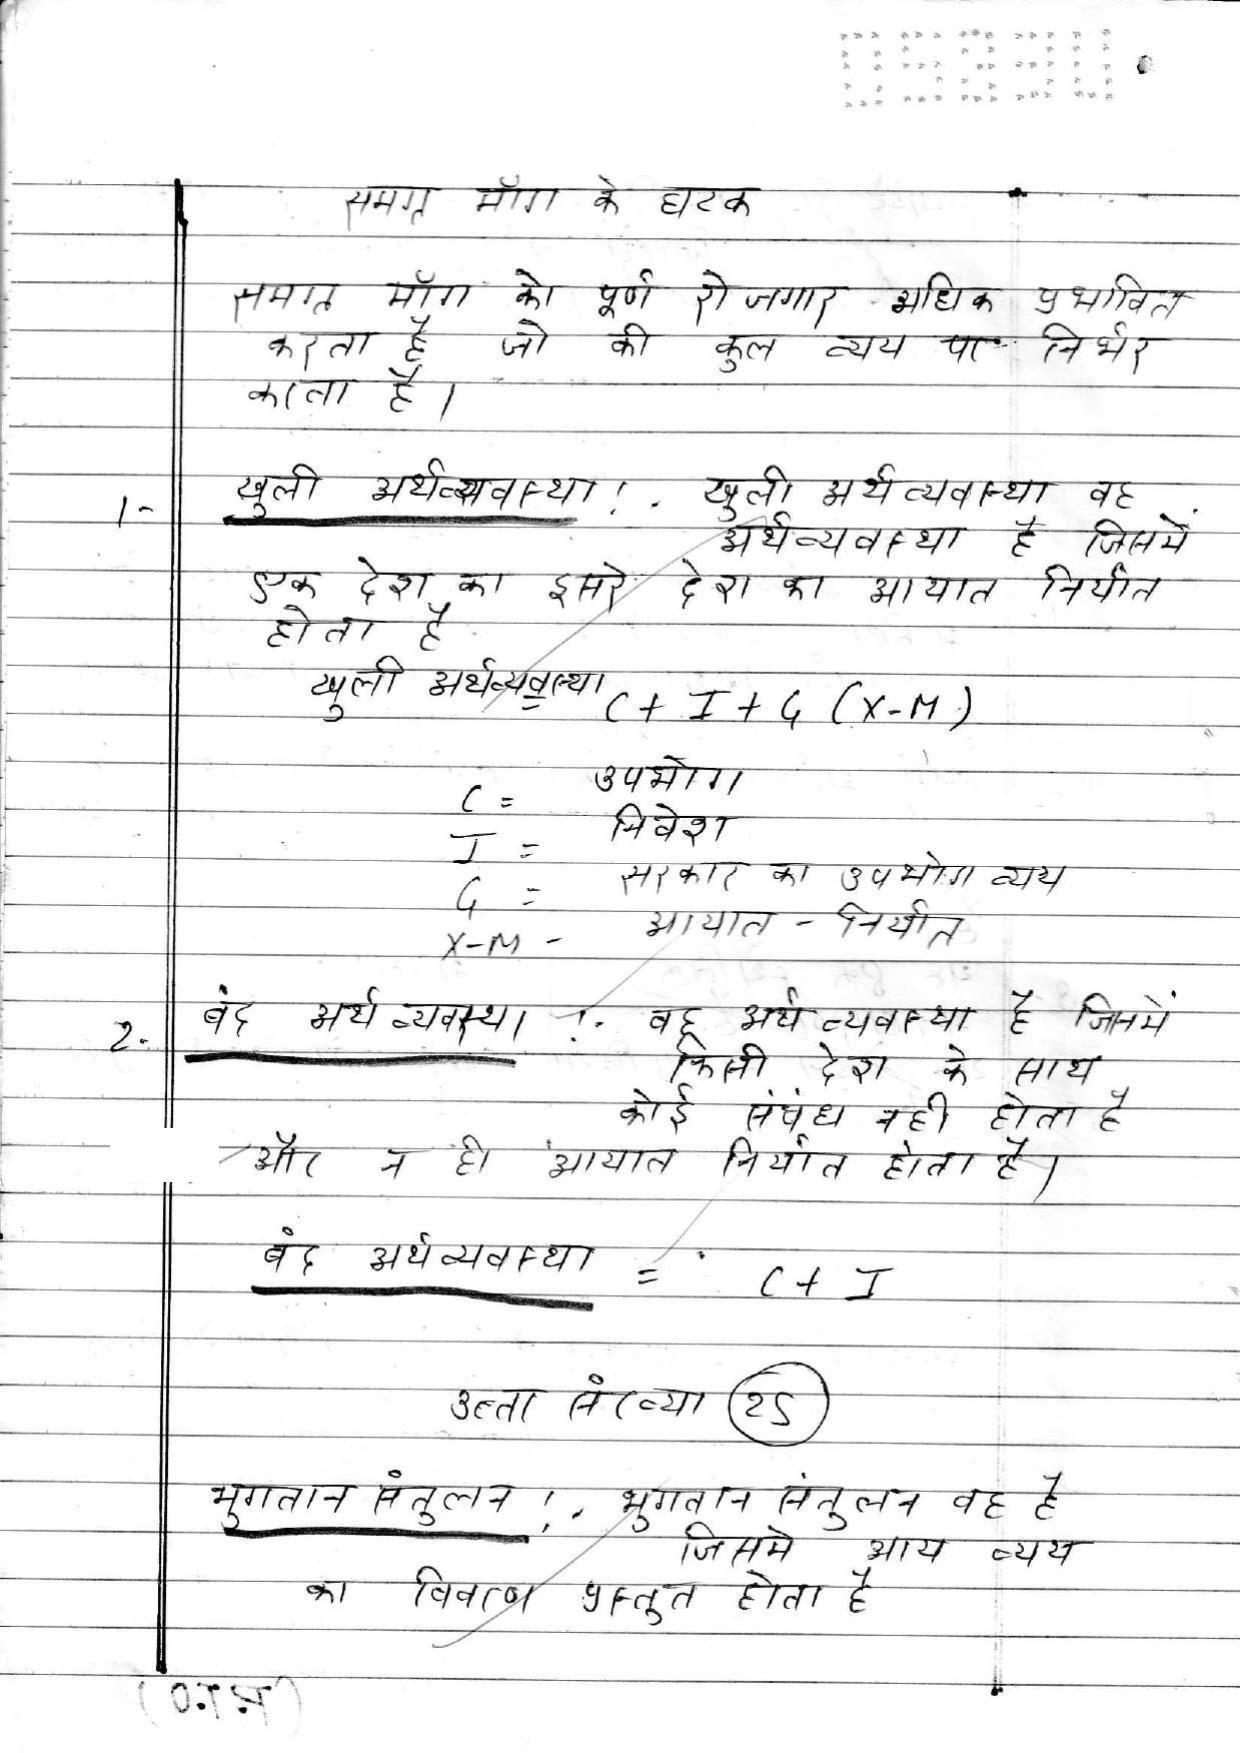 समग्र माँग के घटक
समग्र माँग को पूर्ण रोजगार अधिक प्रभावित
करता है जो की कुल व्यय पर निर्भर
करता है।
1- खुली अर्थव्यवस्था :- खुली अर्थव्यवस्था वह
अर्थव्यवस्था है जिसमें
एक देश का दूसरे देश का आयात निर्यात
होता है
खुली अर्थव्यवस्था = C + I + G (X-M)
C = उपभोग
I = निवेश
G = सरकार का उपभोग व्यय
X-M - आयात - निर्यात
2. बंद अर्थव्यवस्था :- वह अर्थव्यवस्था है जिसमें
किसी देश के साथ
कोई संबंध नही होता है
और न ही आयात निर्यात होता है।
बंद अर्थव्यवस्था = C + I
उत्तर संख्या 25
भुगतान संतुलन :- भुगतान संतुलन वह है
जिसमे आय व्यय
का विवरण प्रस्तुत होता है